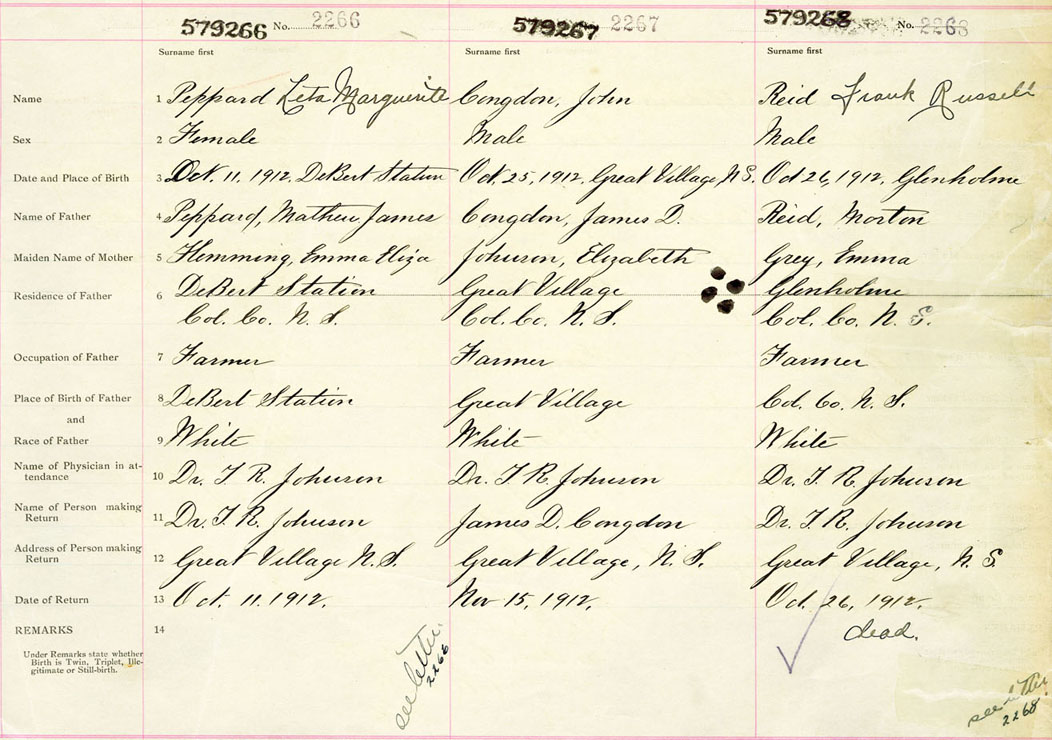 579266 No. 2266 579267 2267 579268 No. 2268
Surname first Surname first Surname first
Name 1 Peppard Leta Marguerite Congdon, John Reid Frank Russell
Sex 2 Female Male Male
Date and Place of Birth 3 Oct. 11, 1912. DeBert Station Oct. 25, 1912, Great Village, N S. Oct 26, 1912, Glenholme
Name of Father 4 Peppard, Mathew James Congdon, James D. Reid, Morton
Maiden Name of Mother 5 Hemming, Emma Eliza Johnson, Elizabeth Grey, Emma
Residence of Father 6 DeBert Station Great Village Glenholme
Col. Co. N. S. Col. Co. N. S. Col. Co. N. S.
Occupation of Father 7 Farmer Farmer Farmer
Place of Birth of Father 8 DeBert Station Great Village Col. Co. N. S.
and
Race of Father 9 White White White
Name of Physician in at-
tendance 10 Dr. T R. Johnson Dr. T R. Johnson Dr. T. R. Johnson
Name of Person making
Return 11 Dr. T. R. Johnson James D. Congdon Dr. T. R. Johnson
Address of Person making
Return 12 Great Village N. S. Great Village, N. S. Great Village, N. S
Date of Return 13 Oct. 11. 1912. Nov 15, 1912. Oct. 26, 1912.
REMARKS 14 dead.
Under Remarks state whether
Birth is Twin, Triplet, Ille-
gitimate or Still-birth.
see letter.
2266
see letter
2268